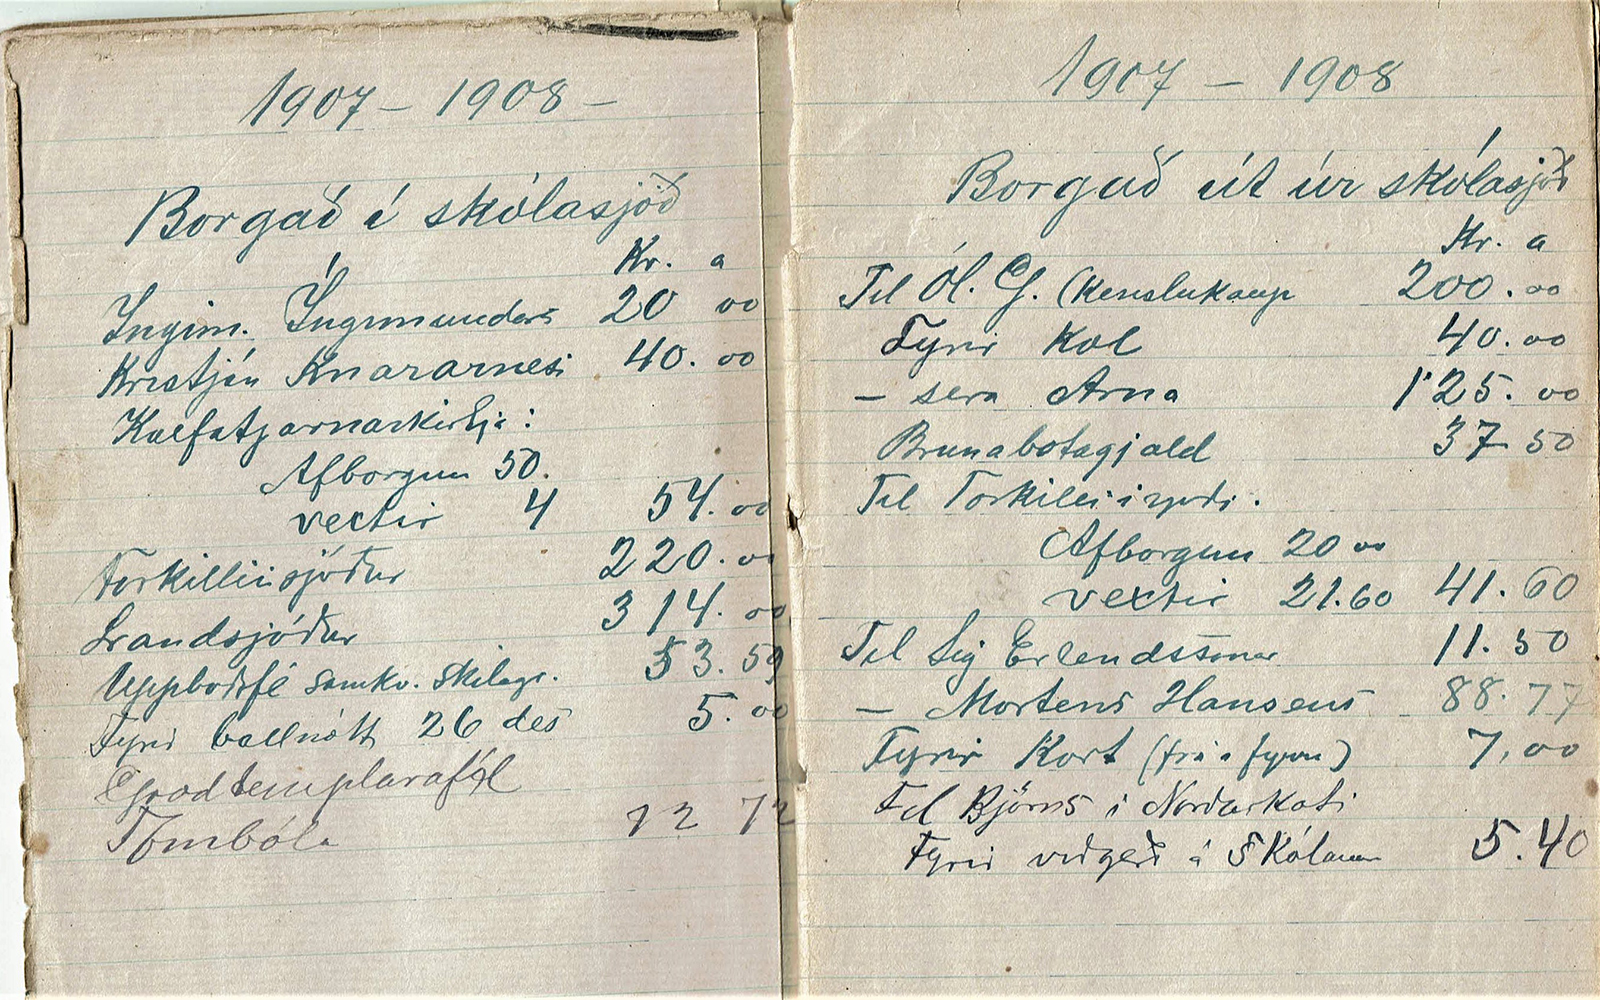 1907 – 1908 –
Borgað í skólasjóð
Kr. a
Ingim. Ingimundars 20 00
Kristján Knararnesi 40. 00
Kalfatjarnarkirkja:
Afborgun 50.
vextir 4 54. 00
Torkilliisjóður 220. 00
Landsjóður 314. 00
Uppboðsfé samkv. skilagr. 53. 59
Fyrir ballnótt 26 des 5. 00
Goodtemplarafél
Tombóla 72
1907 – 1908
Borgað út úr skólasjóð
Kr. a
Til Ól. G. (Kenslukaup 200. 00
Fyrir Kol 40. 00
– sera Arna 125. 00
Brunabotagjald 37 50
Til Torkilii
Afborgun 20 00
vextir 21.60 41. 60
Til Sig Erlendssonar 11. 50
– Mortens Hansens 88. 77
Fyrir Kort (frá í fyrra) 7,00
Til Björns í Norðurkoti
Fyrir viðgerð á Skólanum 5.40